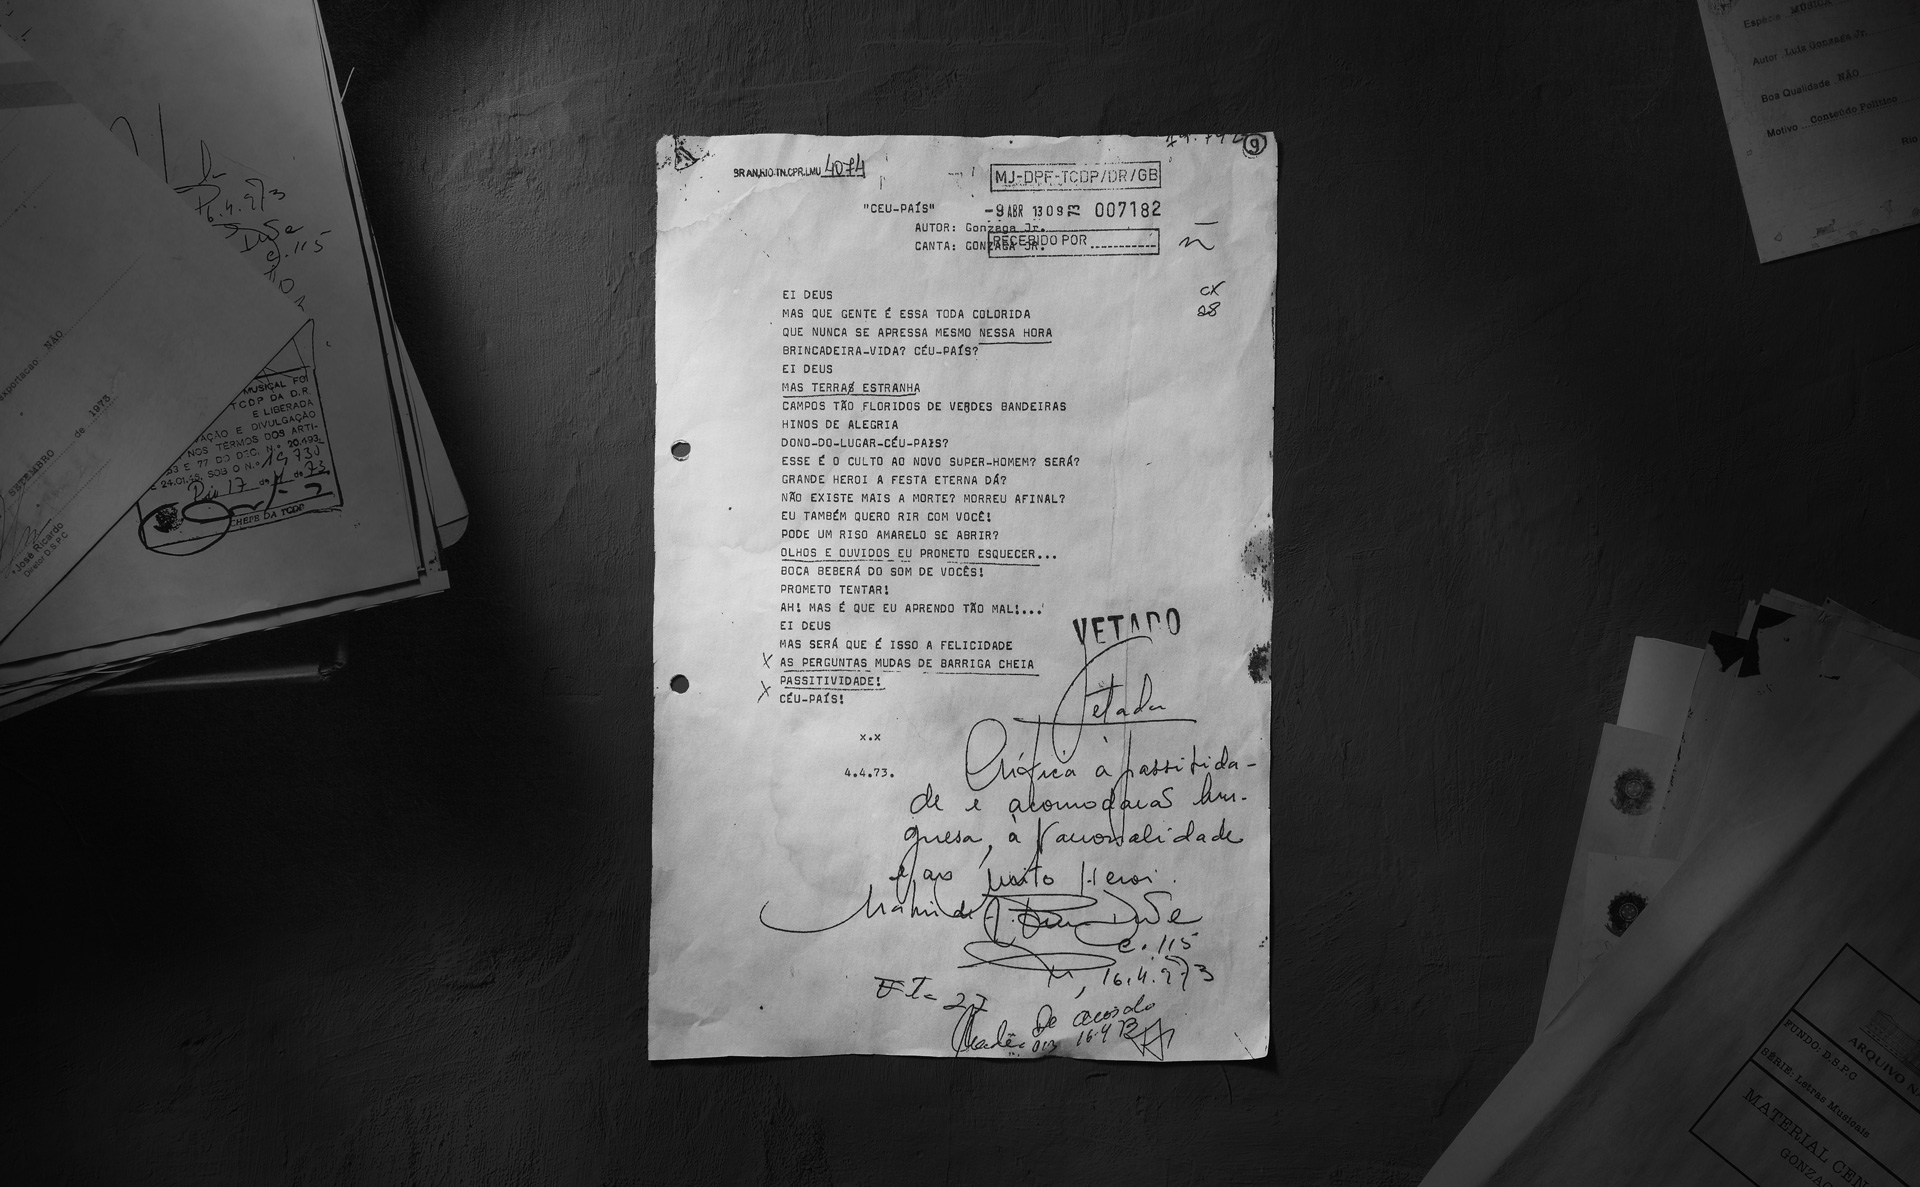 BR AN,RIO.TN.CPR.LMU 4074
9
MJ-DPF-TCDP/DR/GB
"CEU-PAÍS"
-9 ABR 1309 73 007182
AUTOR: Gonzaga Jr.
CANTA: GONZAGA JR.
RECEBIDO POR
CX
28
EI DEUS
MAS QUE GENTE É ESSA TODA COLORIDA
QUE NUNCA SE APRESSA MESMO NESSA HORA
BRINCADEIRA-VIDA? CÉU-PAÍS?
EI DEUS
MAS TERRAS ESTRANHA
CAMPOS TÃO FLORIDOS DE VERDES BANDEIRAS
HINOS DE ALEGRIA
DONO-DO-LUGAR-CÉU-PAIS?
ESSE É O CULTO AO NOVO SUPER-HOMEM? SERÁ?
GRANDE HEROI A FESTA ETERNA DÁ?
NÃO EXISTE MAIS A MORTE? MORREU AFINAL?
EU TAMBÉM QUERO RIR COM VOCÊ!
PODE UM RISO AMARELO SE ABRIR?
OLHOS E OUVIDOS EU PROMETO ESQUECER...
BOCA BEBERÁ DO SOM DE VOCÊS!
PROMETO TENTAR!
AH! MAS É QUE EU APRENDO TÃO MAL!...
EI DEUS
MAS SERÁ QUE É ISSO A FELICIDADE
X AS PERGUNTAS MUDAS DE BARRIGA CHEIA
PASSITIVIDADE!
X CÉU-PAÍS!
x.x
4.4.73.
VETADO
Vetada
Crítica à passitida-
de e acomodação bur-
guesa, à racionalidade
e ao mito Heroi.
c. 115
16.4.973
De acordo
16.4.73
16.4.973
c. 115
exportação NÃO
SETEMBRO de 1973
José Ricardo
Diretor D.S.P.C
MUSICAL FOI
TCDP DA D.R.
E LIBERADA
AÇÃO E DIVULGAÇÃO
NOS TERMOS DOS ARTI-
53 E 77 DO DEC. N.º 20.493
24.01.46, SOB O N.º 19730
Rio 17 de de 73
CHEFE DA TCDP
Especie MÚSICA
Autor Luis Gonzaga Jr.
Boa Qualidade NÃO
Motivo Conteúdo Politico
Rio
ARQUIVO NA
FUNDO: D.S.P.C
SÉRIE: Letras Musicais
MATERIAL CEN
GONZA